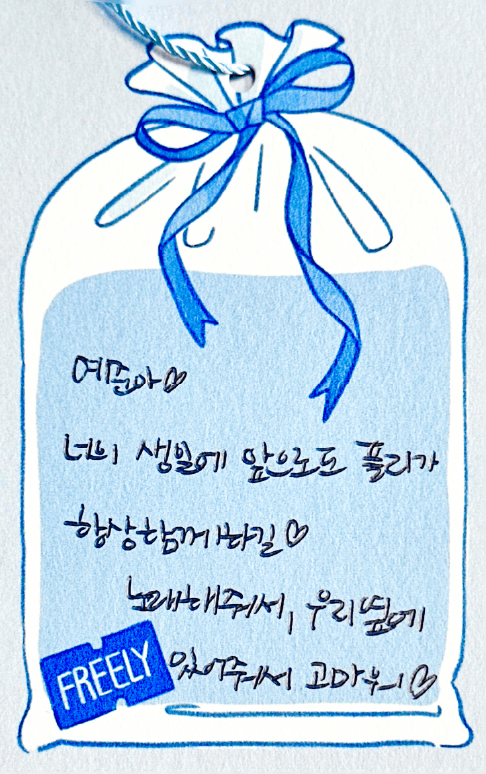 예준아♡
너의 생일에 앞으로도 플리가
항상함께하길♡
노래해줘서, 우리옆에
있어줘서 고마워♡
FREELY